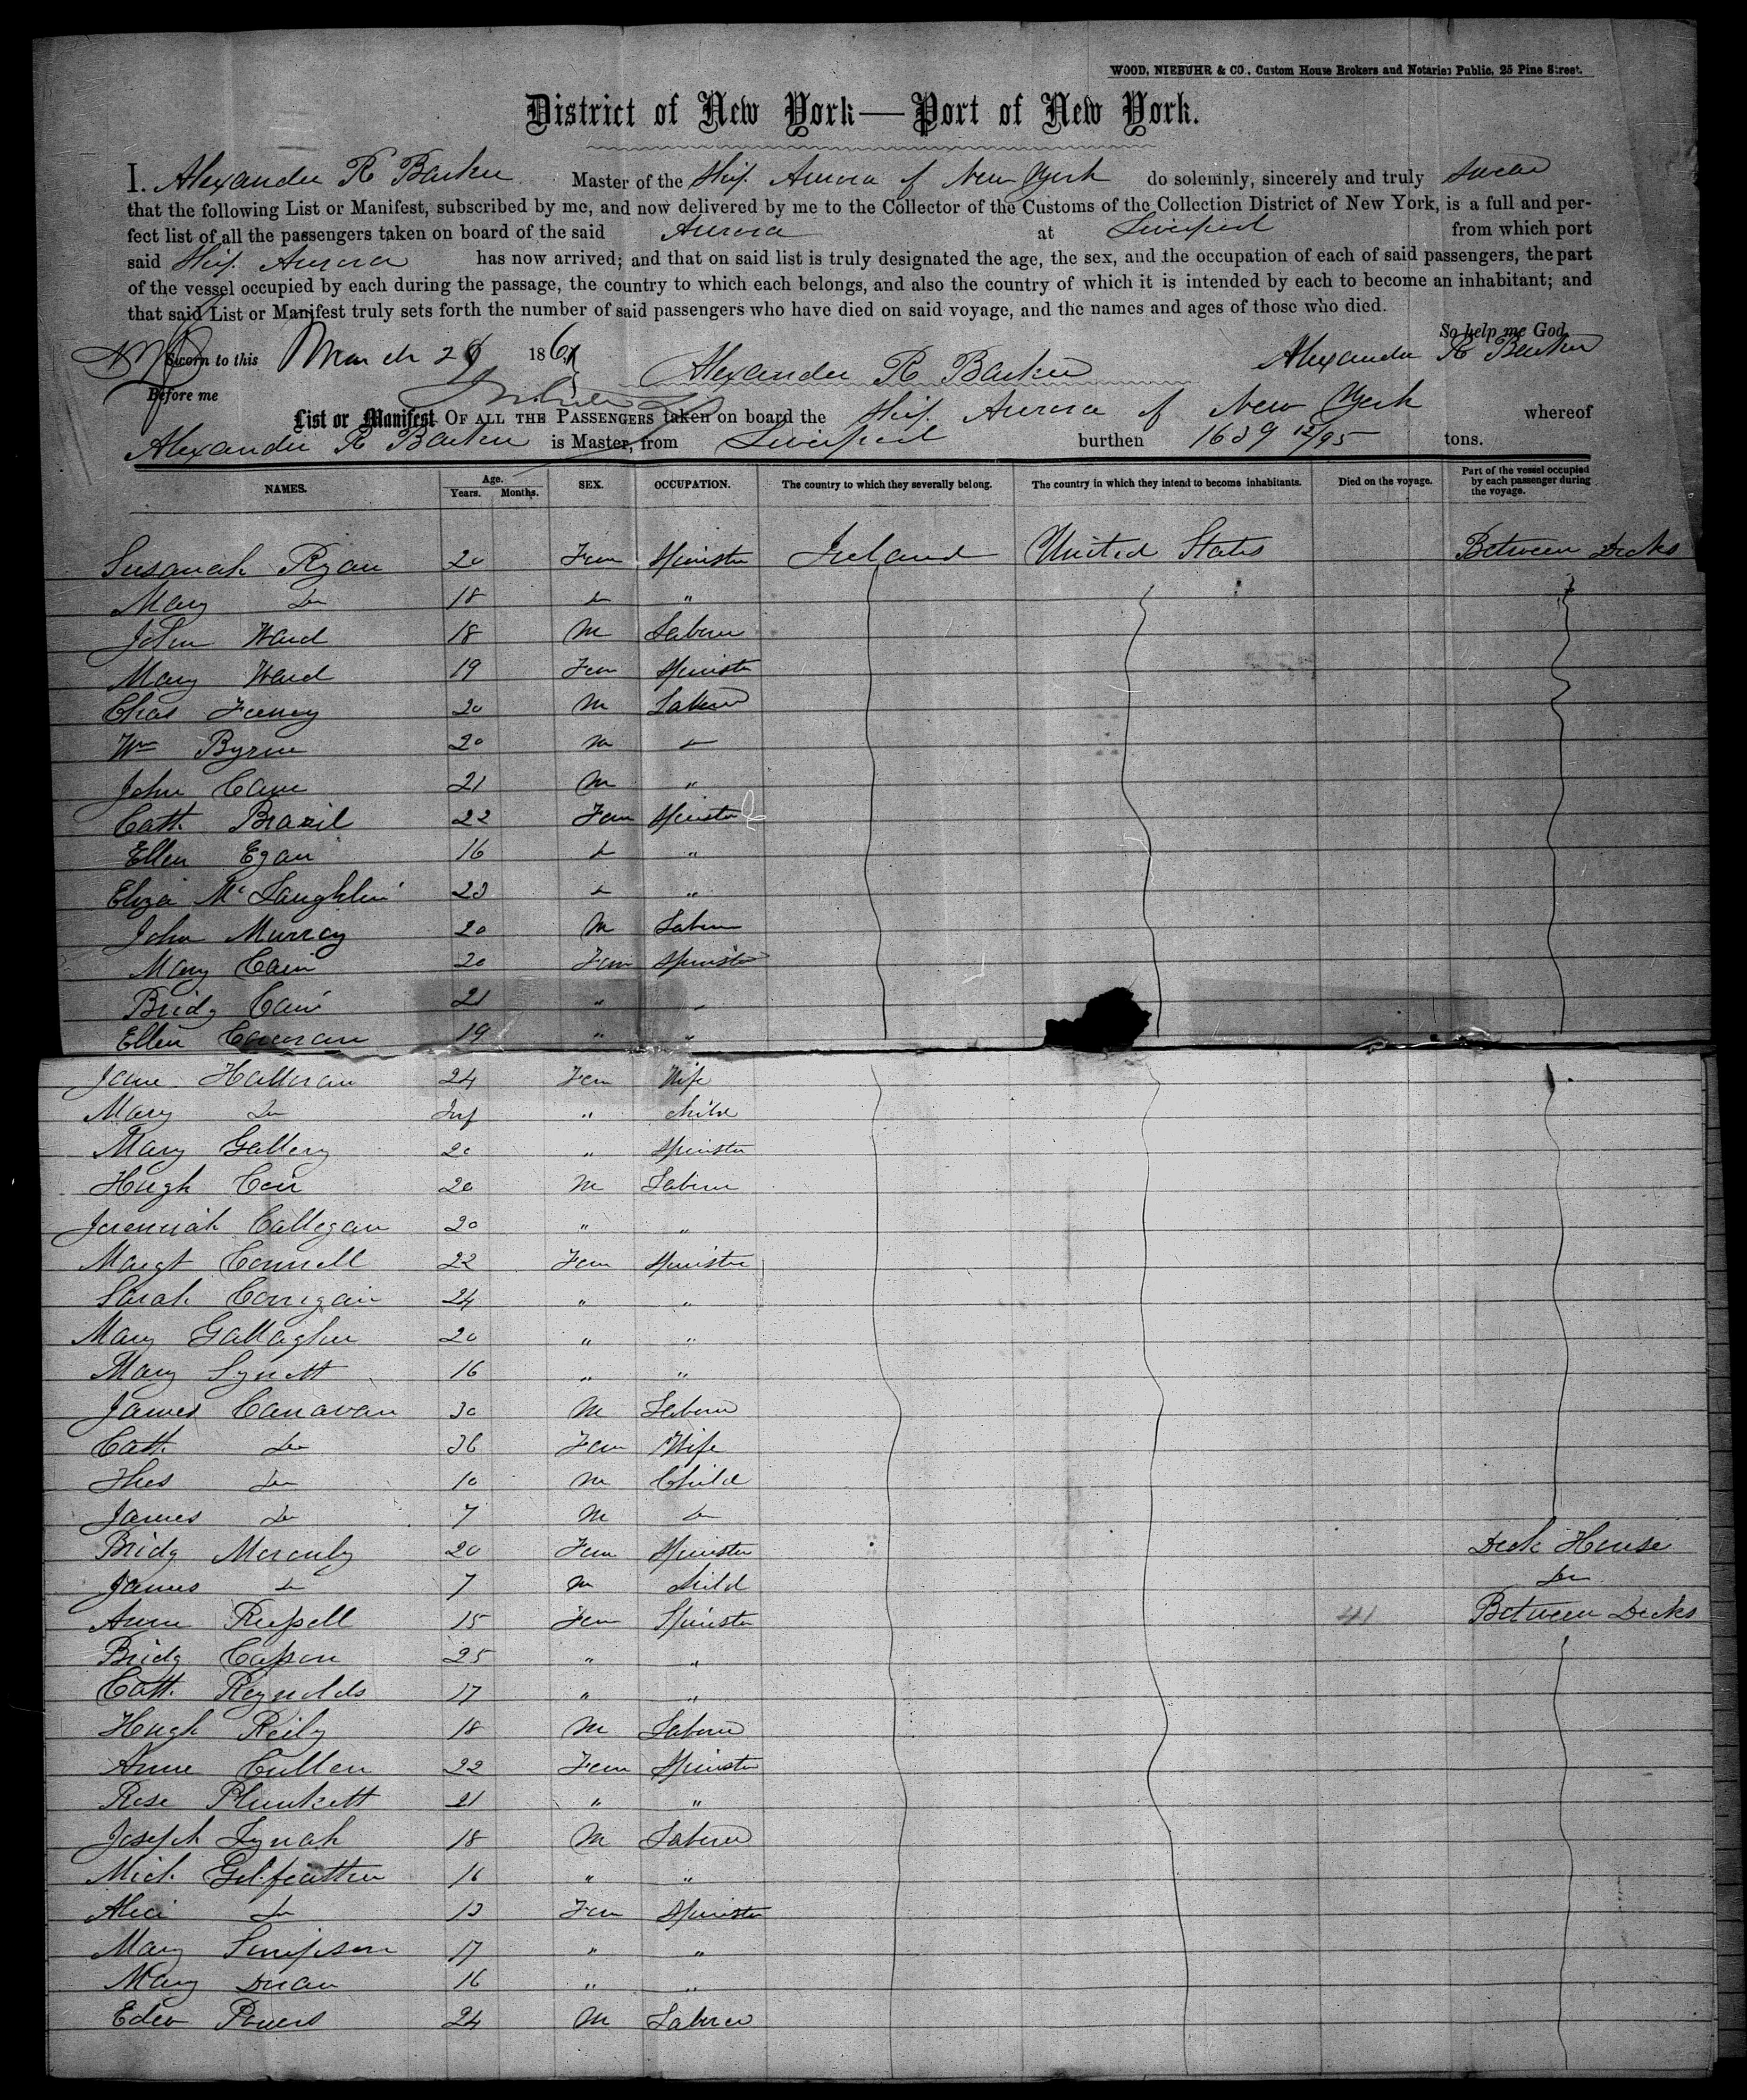 WOOD, NIEBUHR & CO., Custom House Brokers and Notaries Public, 25 Pine Street.
District of New York—Port of New York.
I. Alexander R Barker Master of the Ship Aurora of New York do solemnly, sincerely and truly swear
that the following List or Manifest, subscribed by me, and now delivered by me to the Collector of the Customs of the Collection District of New York, is a full and per-
fect list of all the passengers taken on board of the said Aurora at Liverpool from which port
said Ship Aurora has now arrived; and that on said list is truly designated the age, the sex, and the occupation of each of said passengers, the part
of the vessel occupied by each during the passage, the country to which each belongs, and also the country of which it is intended by each to become an inhabitant; and
that said List or Manifest truly sets forth the number of said passengers who have died on said voyage, and the names and ages of those who died.
So help me God.
Sworn to this March 186 Alexander R Barker Alexander R Barker
Before me
List or Manifest OF ALL THE PASSENGERS taken on board the Ship Aurora of New York whereof
Alexander R Barker is Master, from Liverpool burthen 1639 12/95 tons.
NAMES. Age. Years. Months. SEX. OCCUPATION. The country to which they severally belong. The country in which they intend to become inhabitants. Died on the voyage. Part of the vessel occupied by each passenger during the voyage.
Susanah Ryan 20 Fem Spinster Ireland United States Between Decks
Mary Do 18 Do "
John Ward 18 M Laborer
Mary Ward 19 Fem Spinster
Chas Feeney 20 M Laborer
Wm Byrne 20 M Do
John Cane 21 M "
Cath Brazil 22 Fem Spinster
Ellen Egan 16 Do "
Eliza McLaughlin 23 Do "
John Murray 20 M Laborer
Mary Cain 20 Fem Spinster
Bridg Cain 21 " "
Ellen Corcoran 19 " "
Jane Halloran 24 Fem Wife
Mary Do Inf " Child
Mary Gallery 20 " Spinster
Hugh 20 M Laborer
Jeremiah Callegan 20 " "
Margt Connell 22 Fem Spinster
Sarah Corrigan 24 " "
Mary Gallagher 20 " "
Mary Lynett 16 " "
James Canavan 30 M Laborer
Cath Do 36 Fem Wife
Thos Do 10 M Child
James Do 7 M Do
Bridg 20 Fem Spinster Deck House
James Do 7 M Child Do
Anne Russell 15 Fem Spinster 41 Between Decks
Bridg Casson 25 " "
Cath Reynolds 17 " "
Hugh Reily 18 M Laborer
Anne Cullen 22 Fem Spinster
Rose Plunkett 21 " "
Joseph Lynah 18 M Laborer
Mich Gilfeather 16 " "
Alice Do 13 Fem Spinster
Mary Simpson 17 " "
Mary Duan 16 " "
Edw Powers 24 M Laborer